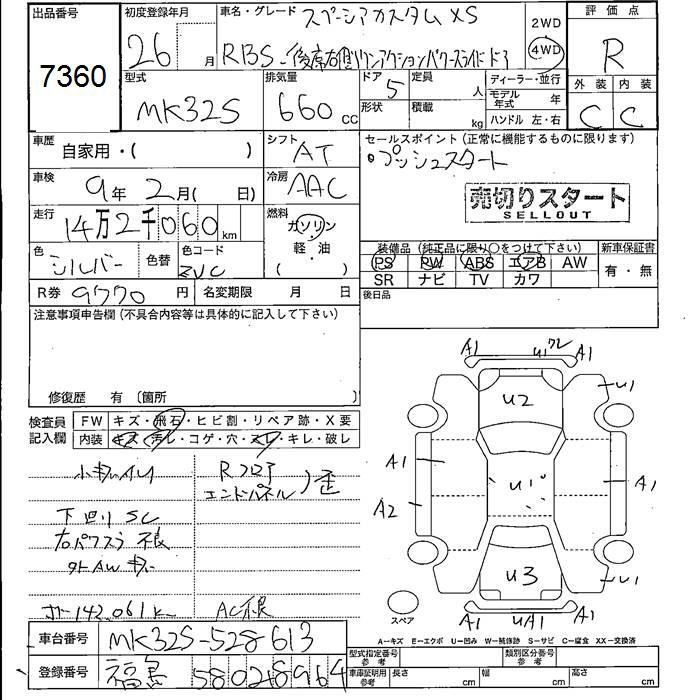 出品番号
7360
初度登録年月
26 月
車名・グレード
スペーシアカスタム XS
RBS
2WD
4WD
評価点
R
型式
MK32S
排気量
660 CC
ドア
5
形状
定員
人
積載
kg
ディーラー・並行
モデル年式 年
ハンドル 左・右
外装 内装
C C
車歴
自家用・( )
シフト
AT
セールスポイント (正常に機能するものに限ります)
・プッシュスタート
車検
9年 2月( 日)
冷房
AAC
売切りスタート
SELLOUT
走行
14万2千060km
燃料
ガソリン・
軽・油
( )
装備品 (純正品に限り○をつけて下さい)
新車保証書
色
シルバー
色替
色コード
ZVC
PS PW ABS エアB AW
SR ナビ TV カワ
有・無
R券
9770 円
名変期限 月 日
後日品
注意事項申告欄 (不具合内容等は具体的に記入して下さい)
修復歴 有 〔箇所 〕
検査員記入欄
FW キズ・飛石・ヒビ割・リペア跡・X要
内装 キズ・汚レ・コゲ・穴・スレ・キレ・破レ
小キズ凹
Rフロア
エンドパネル 歪
下回りSC
右パワスラ不良
外AWキズ
142,061k
A1 U1 A1
U1
U2
A1
U1
A1
A2
U3
U1
A1 UA1 A1
スペア
A-キズ E-エクボ U-凹み W-補修跡 S-サビ C-腐食 XX-交換済
車台番号
MK32S-528613
登録番号
福島 580 2 8964
型式指定番号 参考
類別区分番号 参考
車庫証明用 参考
長さ cm
幅 cm
高さ cm